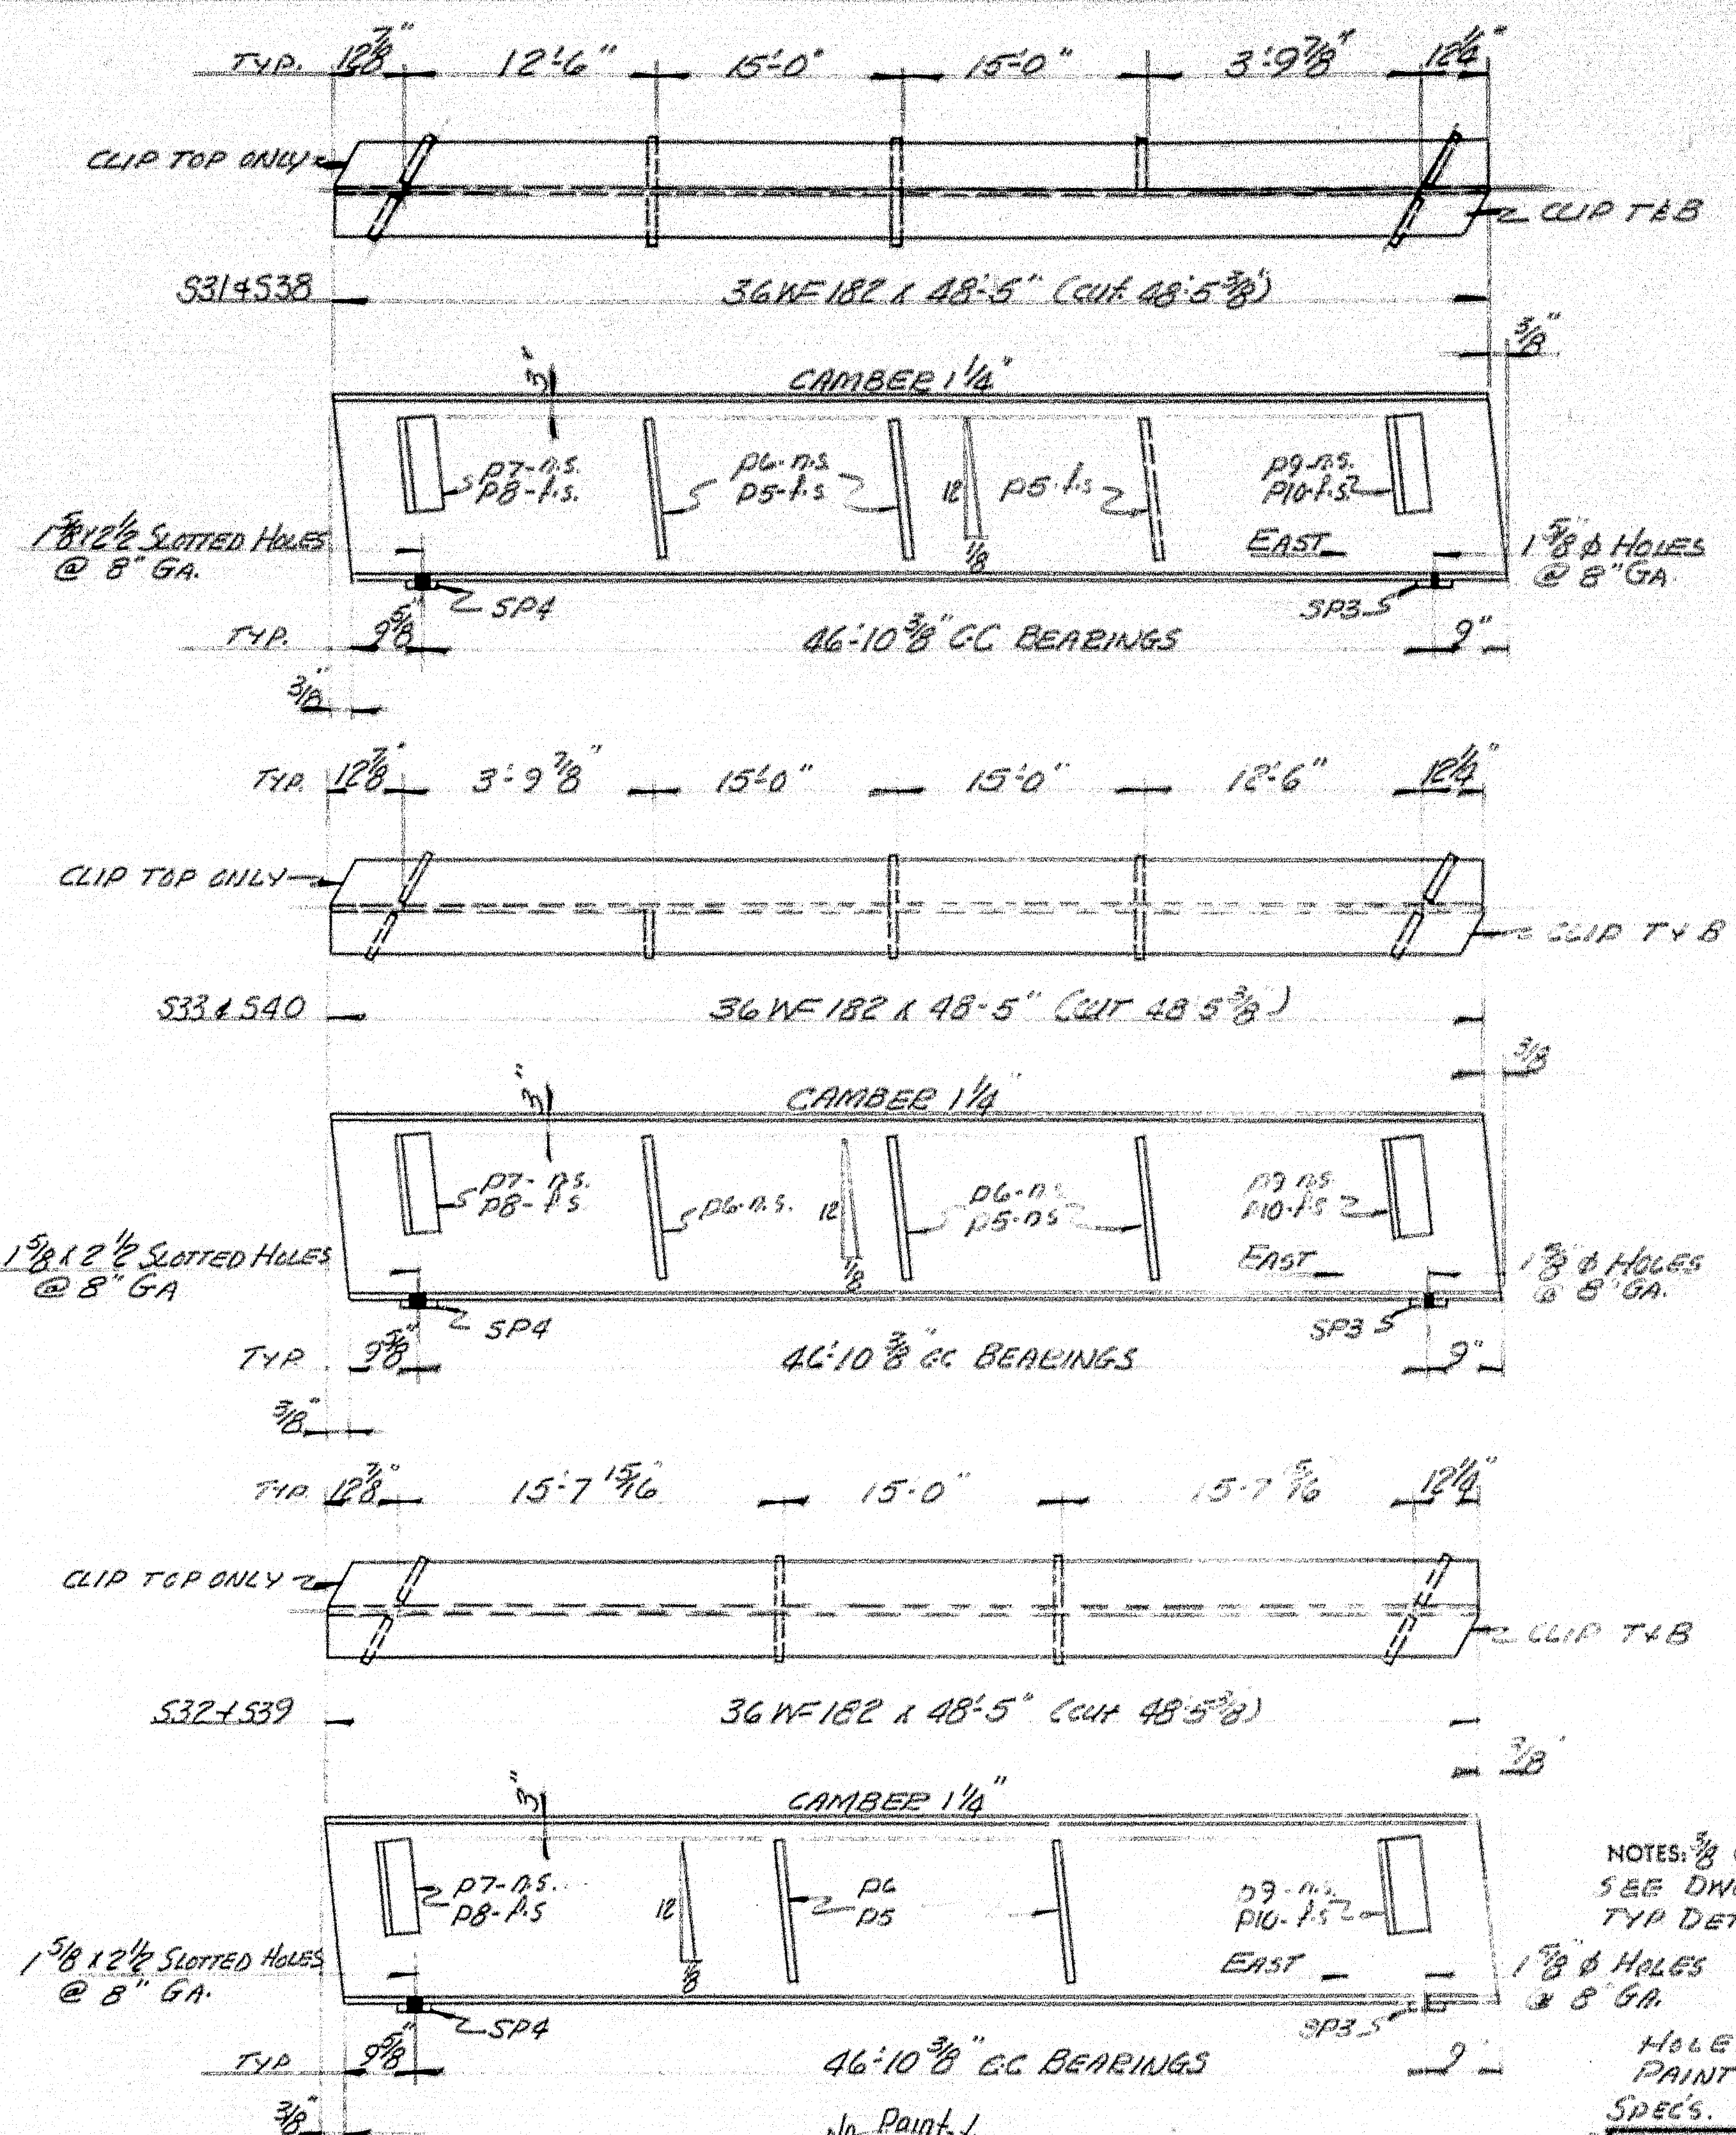 TYP. 12 7/8" 12'-6" 15'-0" 15'-0" 3'-9 7/8" 12 1/4"
CLIP TOP ONLY
CLIP T&B
S31&S38 36WF182 x 48'-5" (cut 48'-5 3/8")
3/8"
3" CAMBER 1 1/4"
p7-n.s.
p8-f.s.
p6-n.s.
p5-f.s
12
1/8
p5-f.s
p9-n.s.
p10-f.s.
1 5/8 x 2 1/2 SLOTTED HOLES
@ 8" GA.
EAST
1 5/8" ϕ HOLES
@ 8" GA.
SP4
SP3
TYP. 9 5/8" 46'-10 3/8" C-C BEARINGS 9"
3/8"
TYP. 12 7/8" 3'-9 7/8" 15'-0" 15'-0" 12'-6" 12 1/4"
CLIP TOP ONLY
CLIP T&B
S33&S40 36WF182 x 48'-5" (cut 48'-5 3/8)
3/8
3" CAMBER 1 1/4"
p7-n.s.
p8-f.s
p6-n.s.
12
1/8
p6-n.s
p5-n.s
p9 n.s
p10-f.s
1 5/8 x 2 1/2 SLOTTED HOLES
@ 8" GA
EAST
1 5/8 ϕ HOLES
@ 8" GA.
SP4
SP3
TYP. 9 5/8" 46'-10 3/8" CC BEARINGS 9"
3/8"
TYP. 12 7/8" 15'-7 15/16 15'-0" 15-7 5/16 12 1/4"
CLIP TOP ONLY
CLIP T&B
S32&S39 36WF182 x 48'-5" (cut 48'-5 3/8)
3/8"
3" CAMBER 1 1/4"
p7-n.s.
p8-f.s
12
1/8
p6
p5
p9-n.s.
p10-f.s
NOTES: 3/8
SEE
TYP. DET
1 5/8 x 2 1/2 SLOTTED HOLES
@ 8" GA.
EAST
1 5/8" ϕ HOLES
@ 8" GA.
SP4
SP3
HOLE
PAINT
SPEC'S.
TYP. 9 5/8" 46'-10 3/8" C-C BEARINGS 9"
3/8"
No Paint